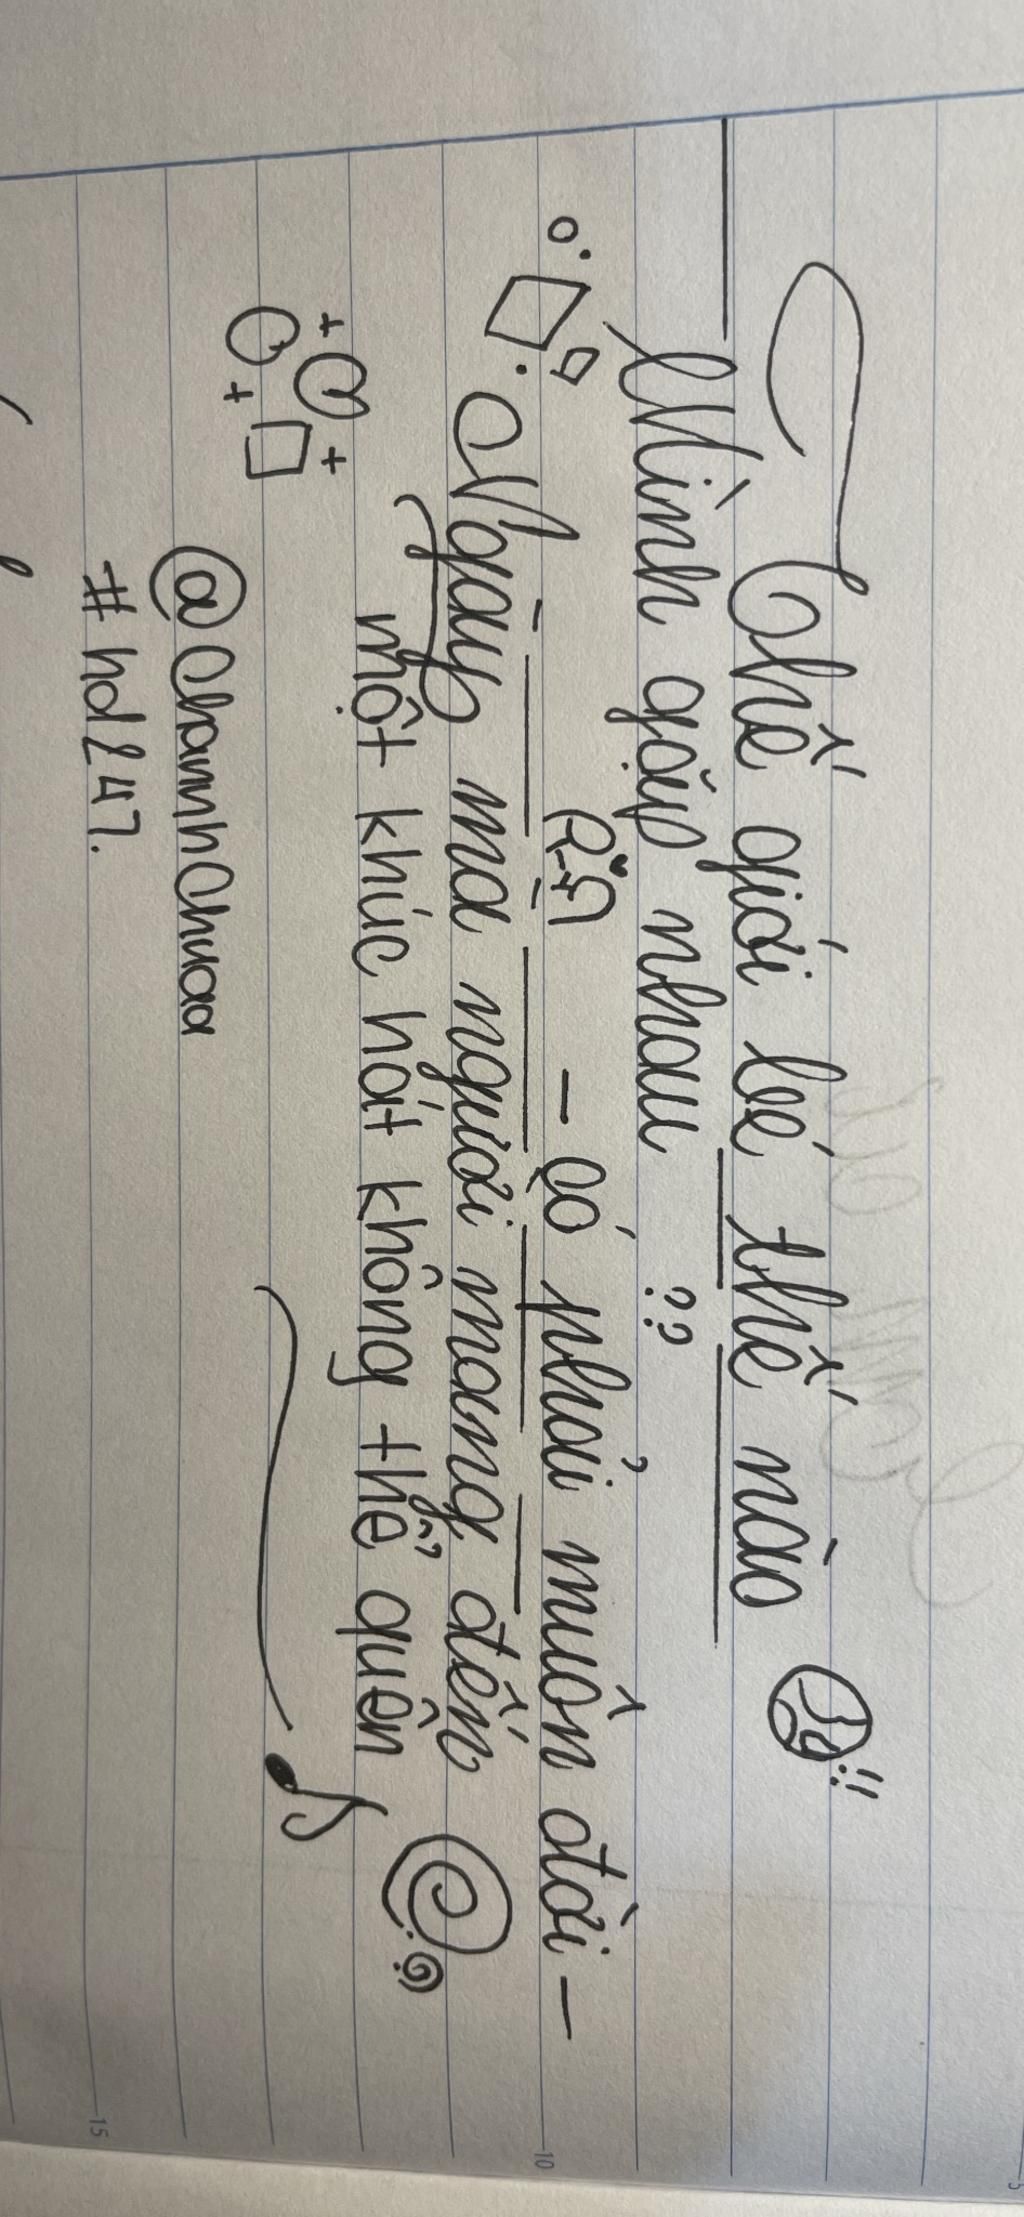 Thế giới bé thế nào
Mình gặp nhau ??
- Có phải muôn đời -
Ngày mà người mang đến
một khúc hát không thể quên
@ChannhChuaa